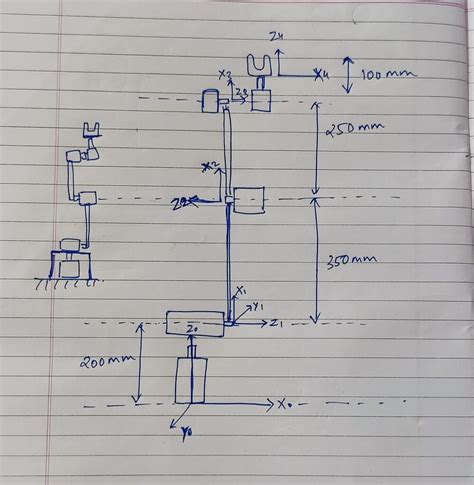 Z4
X4
100mm
X3
Z3
250mm
X2
Z2
350mm
X1
Y1
Z1
Z0
200mm
X0
Y0